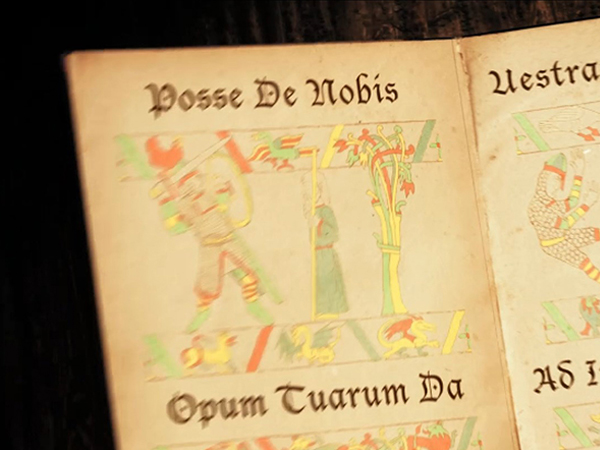 Posse De Nobis
Opum Tuarum Da
Uestra
Ad